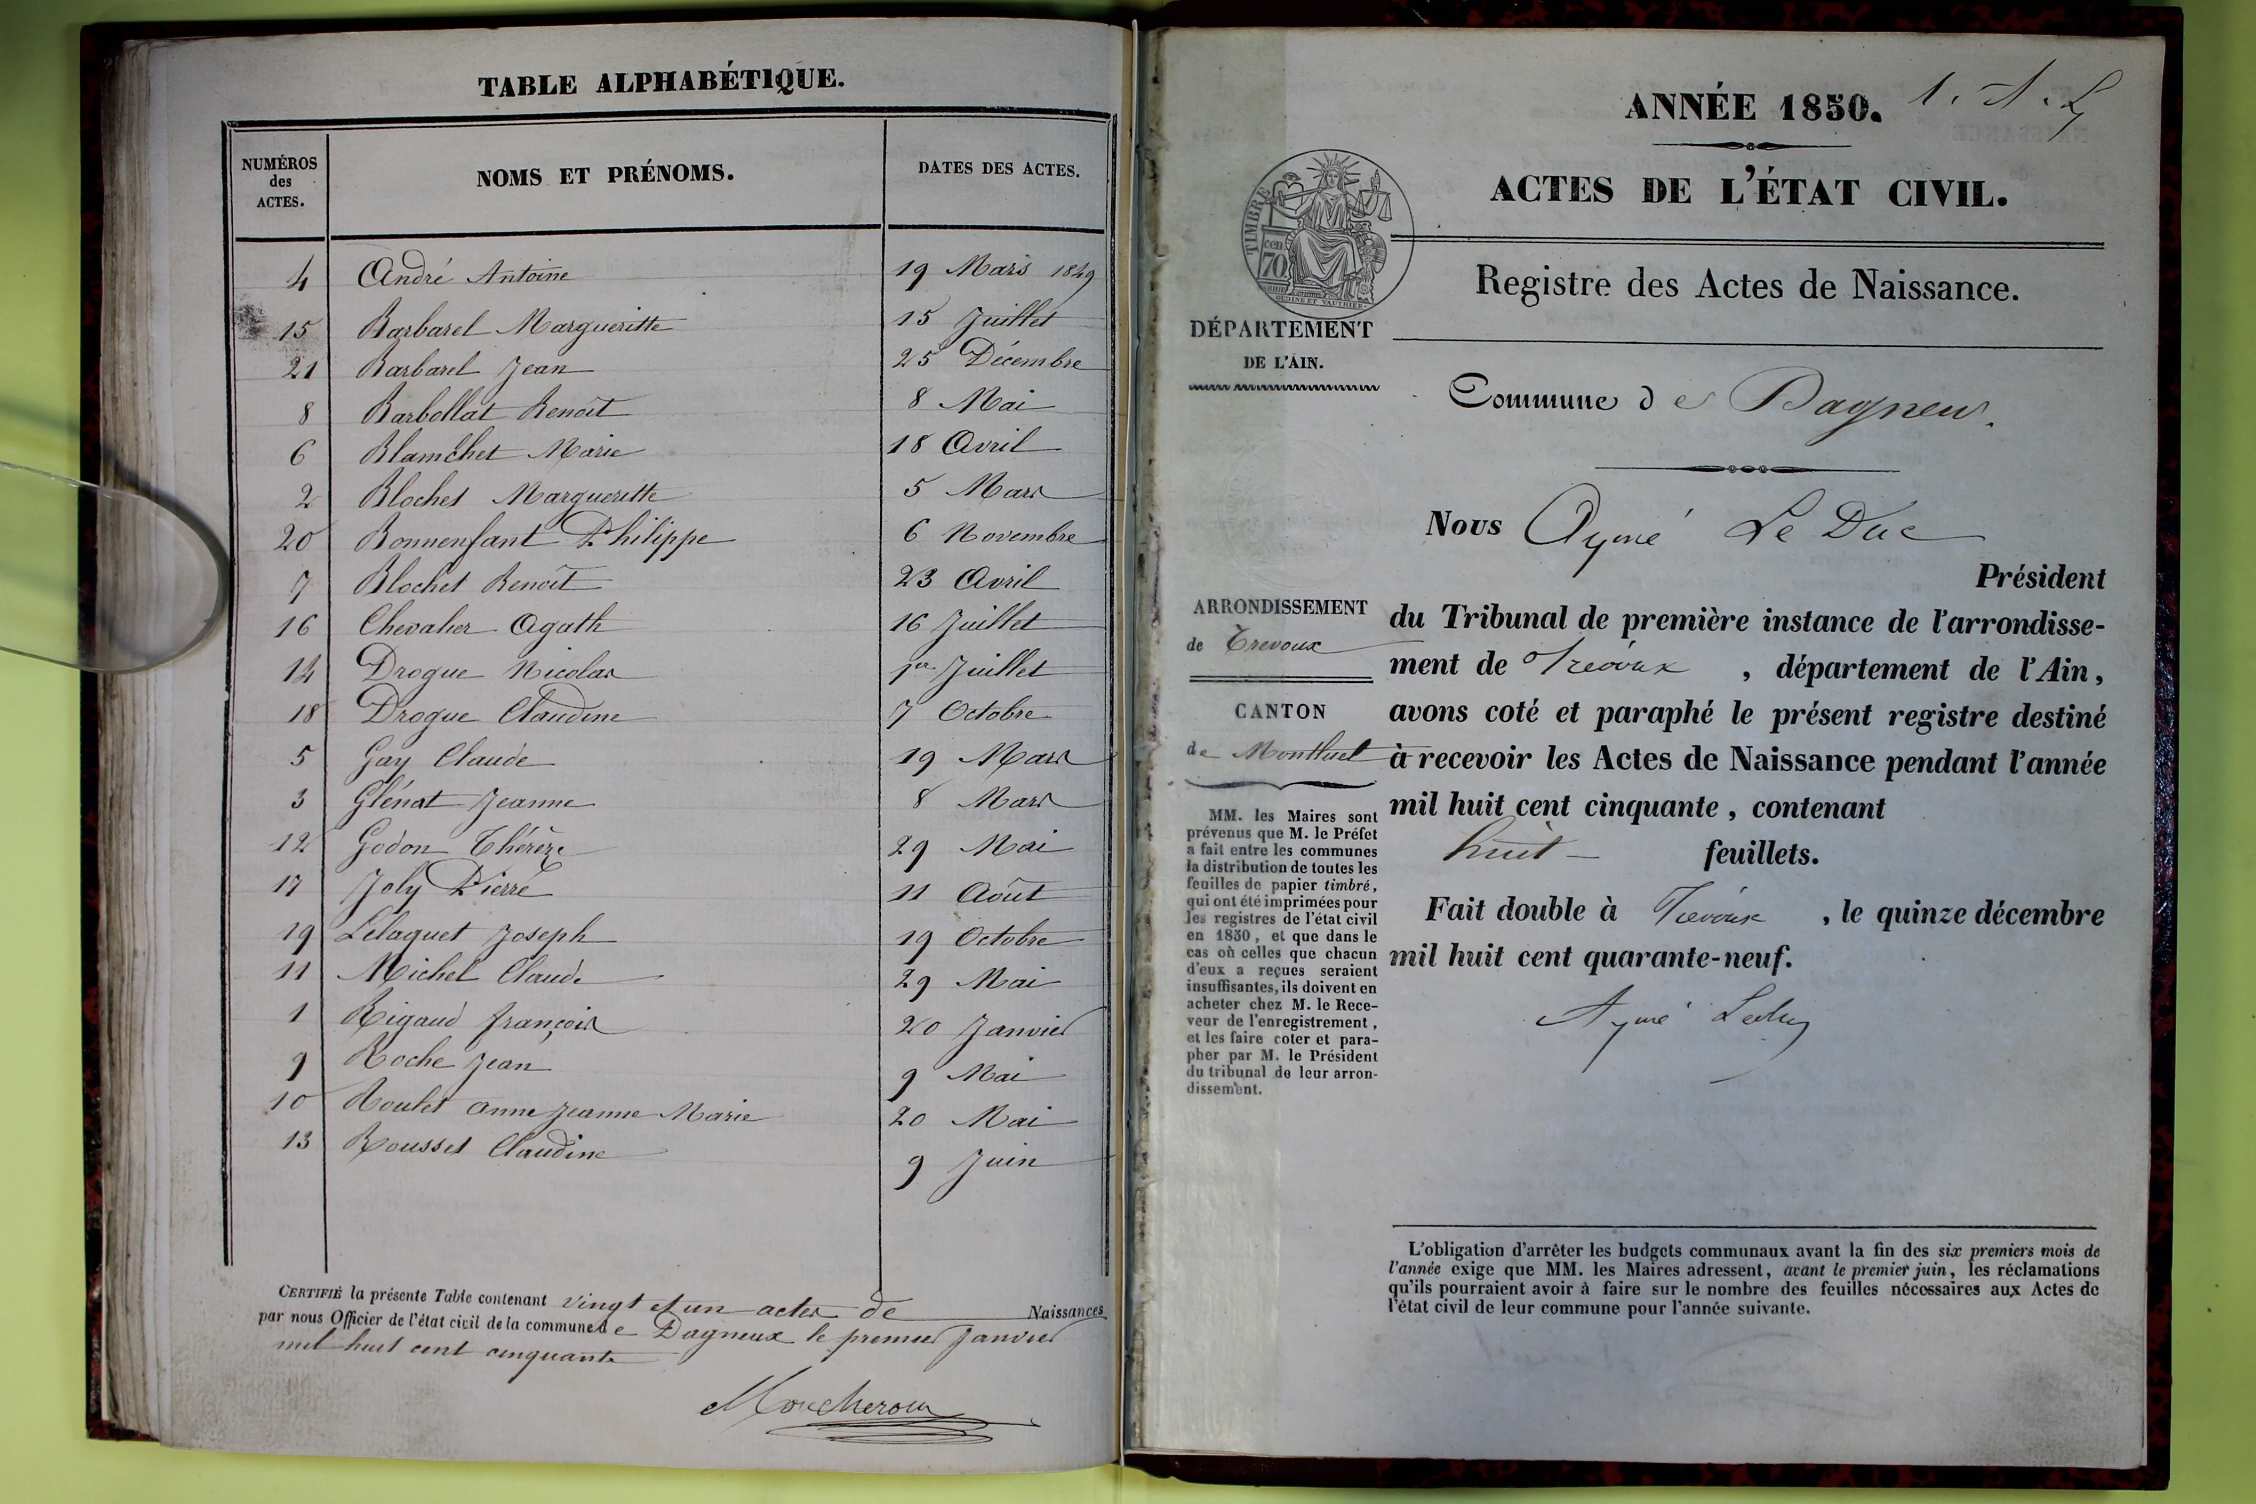 TABLE ALPHABÉTIQUE.
NUMÉROS des ACTES. NOMS ET PRÉNOMS. DATES DES ACTES.
4 André Antoine 19 Mars 1849
15 Barbarel Margueritte 15 Juillet
21 Barbarel Jean 25 Décembre
8 Barbollat Benoît 8 Mai
6 Blamchet Marie 18 Avril
2 Blochet Margueritte 5 Mars
20 Bonnenfant Philippe 6 Novembre
7 Blochet Benoît 23 Avril
16 Chevalier Agath 16 Juillet
14 Drogue Nicolas 1er Juillet
18 Drogue Claudine 7 Octobre
5 Gay Claude 19 Mars
3 Glénat Jeanne 8 Mars
12 Godon Thérèze 29 Mai
17 Joly Pierre 11 Août
19 Lélaquet Joseph 19 Octobre
11 Michel Claude 29 Mai
1 Rigaud françois 20 Janvier
9 Roche Jean 9 Mai
10 Roulet anne Jeanne Marie 20 Mai
13 Rousset Claudine 9 Juin
CERTIFIÉ la présente Table contenant vingt et un actes de Naissances
par nous Officier de l'état civil de la commune de Dagneux le premier Janvier
mil huit cent cinquante
ANNÉE 1850. 1. A. L
ACTES DE L'ÉTAT CIVIL.
TIMBRE
cen 70
OUDINE ET VAUTHIER
Registre des Actes de Naissance.
DÉPARTEMENT
DE L'AIN.
Commune de Dagneux.
Nous Aymé Le Duc
Président
ARRONDISSEMENT
de Trevoux
CANTON
de Montluel
du Tribunal de première instance de l'arrondisse-
ment de Trévoux , département de l'Ain,
avons coté et paraphé le présent registre destiné
à recevoir les Actes de Naissance pendant l'année
mil huit cent cinquante, contenant
huit feuillets.
Fait double à Trévoux , le quinze décembre
mil huit cent quarante-neuf.
Aymé Leduc
MM. les Maires sont
prévenus que M. le Préfet
a fait entre les communes
la distribution de toutes les
feuilles de papier timbré,
qui ont été imprimées pour
les registres de l'état civil
en 1850, et que dans le
cas où celles que chacun
d'eux a reçues seraient
insuffisantes, ils doivent en
acheter chez M. le Rece-
veur de l'enregistrement,
et les faire coter et para-
pher par M. le Président
du tribunal de leur arron-
dissement.
L'obligation d'arrêter les budgets communaux avant la fin des six premiers mois de
l'année exige que MM. les Maires adressent, avant le premier juin, les réclamations
qu'ils pourraient avoir à faire sur le nombre des feuilles nécessaires aux Actes de
l'état civil de leur commune pour l'année suivante.